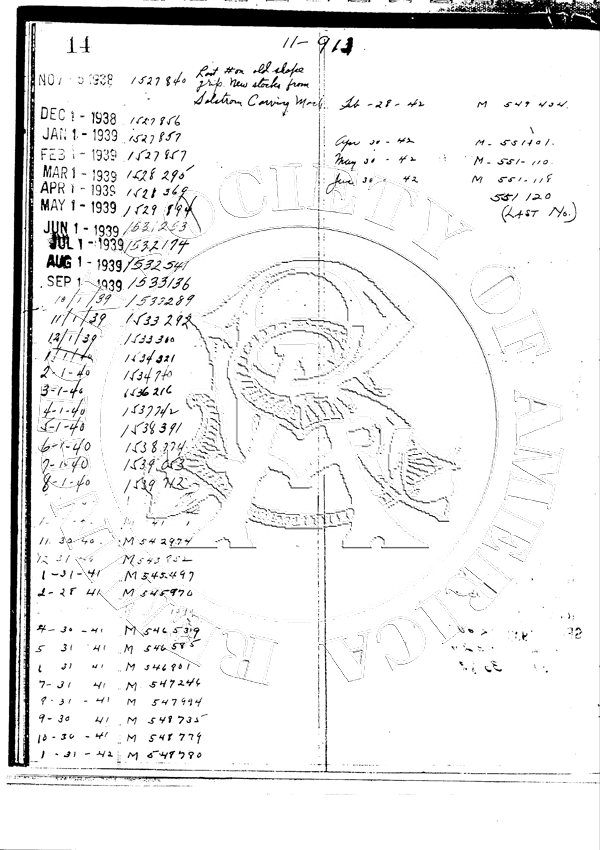 14
11-9
NOV 1938 1527840 Last # on old shape
grip. New stocks from
Salstrom Carving Mach.
DEC 1 - 1938 1527856
JAN 1 - 1939 1527857
FEB 1 - 1939 1527857
MAR 1 - 1939 1528295
APR 1 - 1939 1528369
MAY 1 - 1939 1529894
JUN 1 - 1939 1531253
JUL 1 - 1939 1532174
AUG 1 - 1939 1532541
SEP 1 - 1939 1533136
10/1/39 1533289
11/1/39 1533292
12/1/39 1533300
1/1/40 1534321
2-1-40 1534740
3-1-40 1536216
4-1-40 1537742
5-1-40 1538391
6-1-40 1538774
7-1-40 1539053
8-1-40 1539712
11 30 40 M 542974
12 31 M 543952
1-31-41 M 545497
2-28 41 M 545976
4-30-41 M 546539
5 31 41 M 546585
6 31 41 M 546901
7-31 41 M 547246
8-31-41 M 547994
9-30 41 M 548735
10-30-41 M 548779
1-31-42 M 548790
Feb-28-42 M 549434
Apr 30-42 M-551101.
May 30-42 M-551-110
June 30-42 M 551-118
551 120
(LAST No.)
SOCIETY OF AMERICA